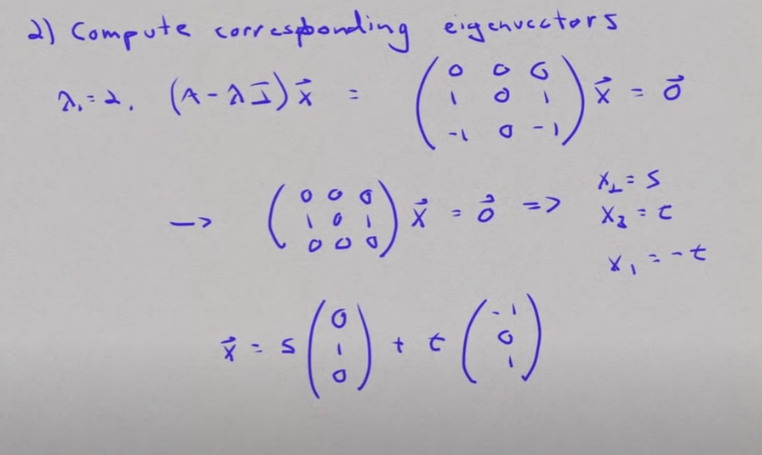 2) Compute corresponding eigenvectors
λ₁=2, (A-λI)x⃗ = (0 0 0; 1 0 1; -1 0 -1) x⃗ = 0⃗
→ (0 0 0; 1 0 1; 0 0 0) x⃗ = 0⃗ => x₂=s
x₃=t
x₁=-t
x⃗ = s(0; 1; 0) + t(-1; 0; 1)